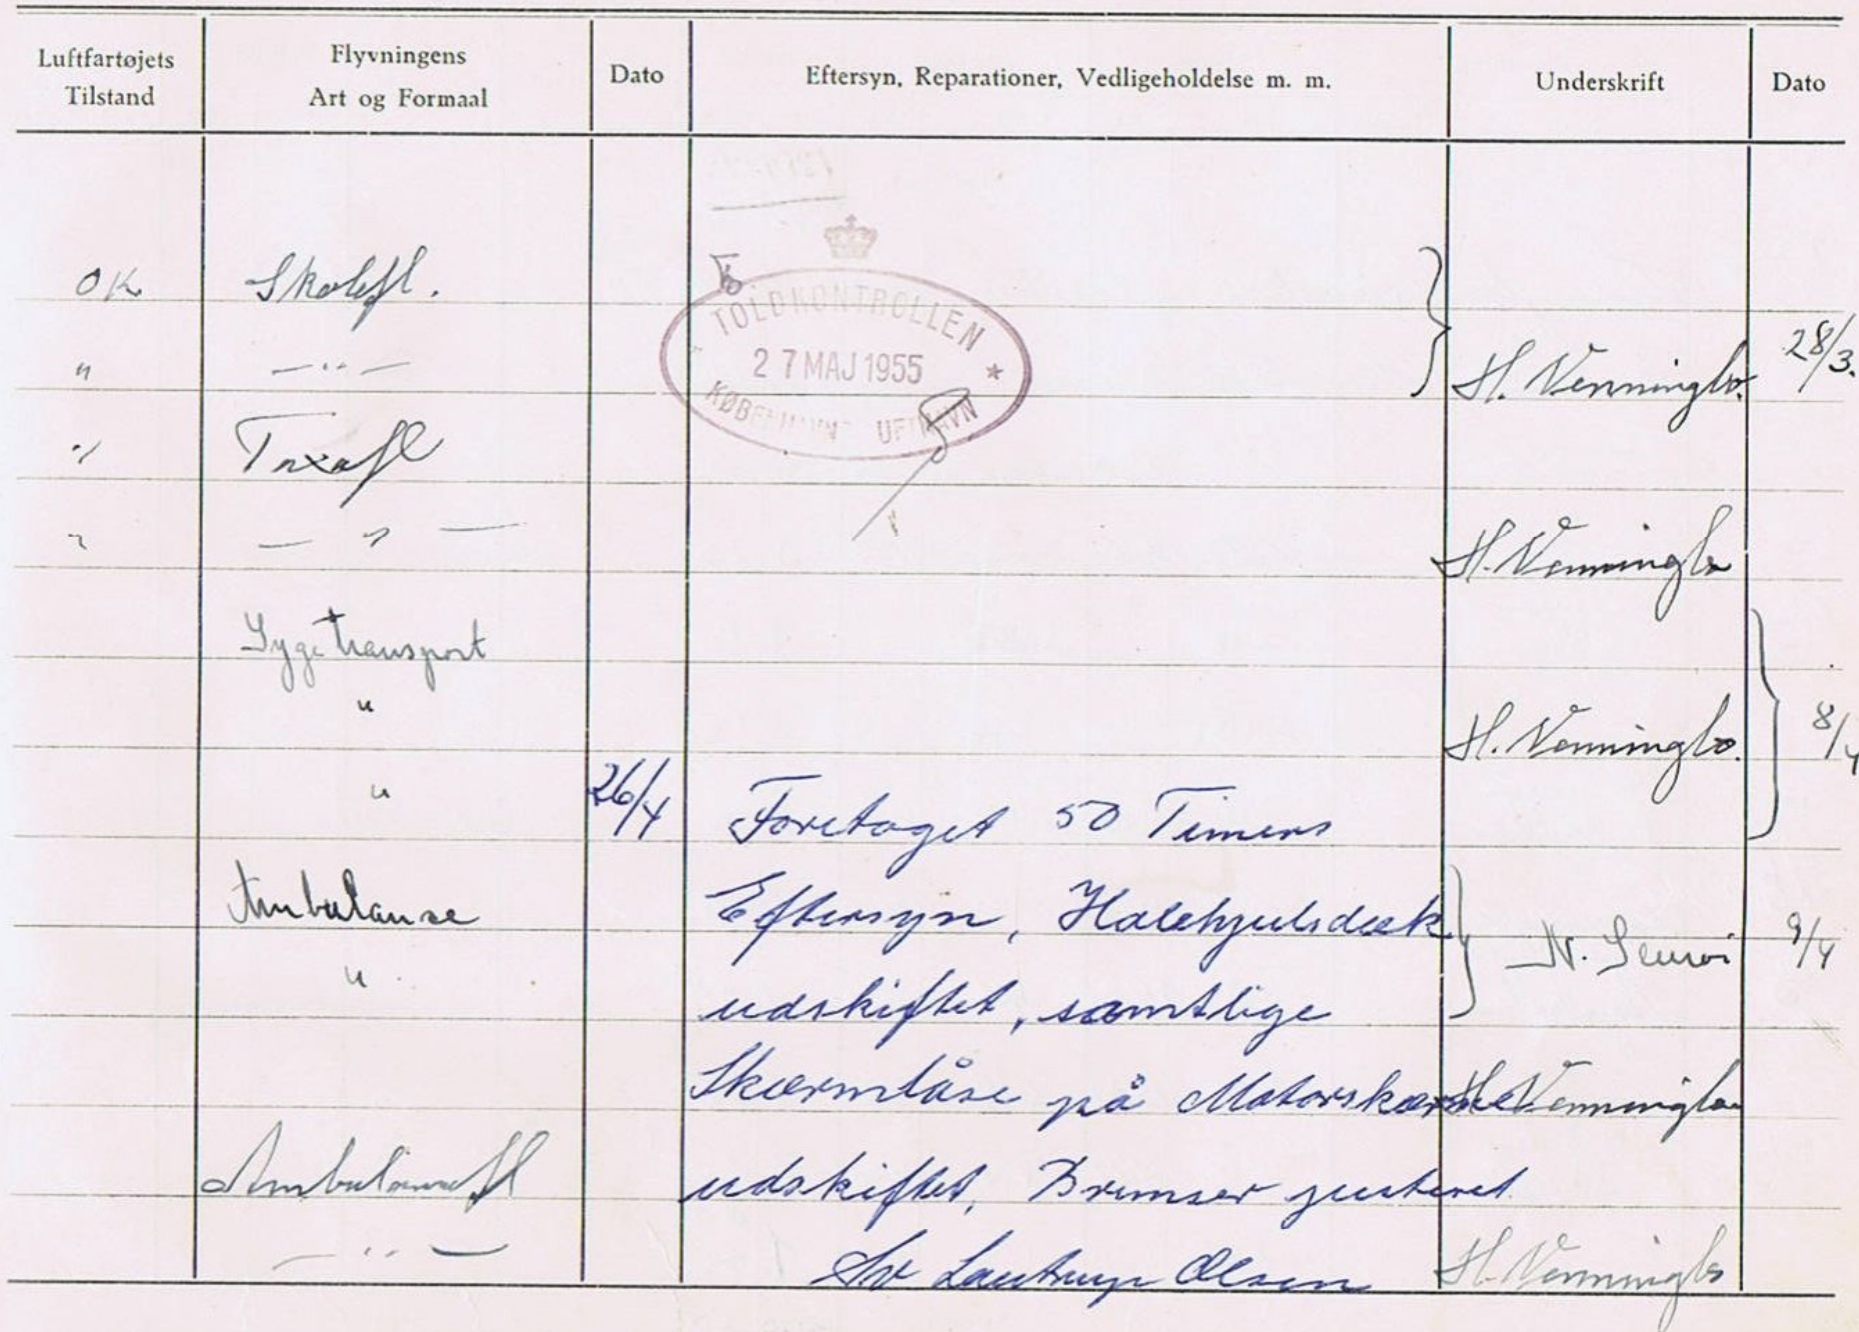 Luftfartøjets Tilstand
Flyvningens Art og Formaal
Dato
Eftersyn, Reparationer, Vedligeholdelse m. m.
Underskrift
Dato
OK Skolefl.
TOLDKONTROLLEN
27 MAJ 1955
KØBENHAVN UFTHAVN
" — " — H. Venningbo. 28/3.
" Taxafl
" — " — H. Venningbo
Sygetransport
" H. Venningbo. 8/4
" 26/4 Foretaget 50 Timers
Ambulance Eftersyn, Halehjulsdæk
" N. 9/4
udskiftet, samtlige
Skærmlåse på Motorskærme H. Venningbo
Ambulancefl udskiftet, Bremser justeret.
— " — Sv Lautrup Olsen H. Venningbo